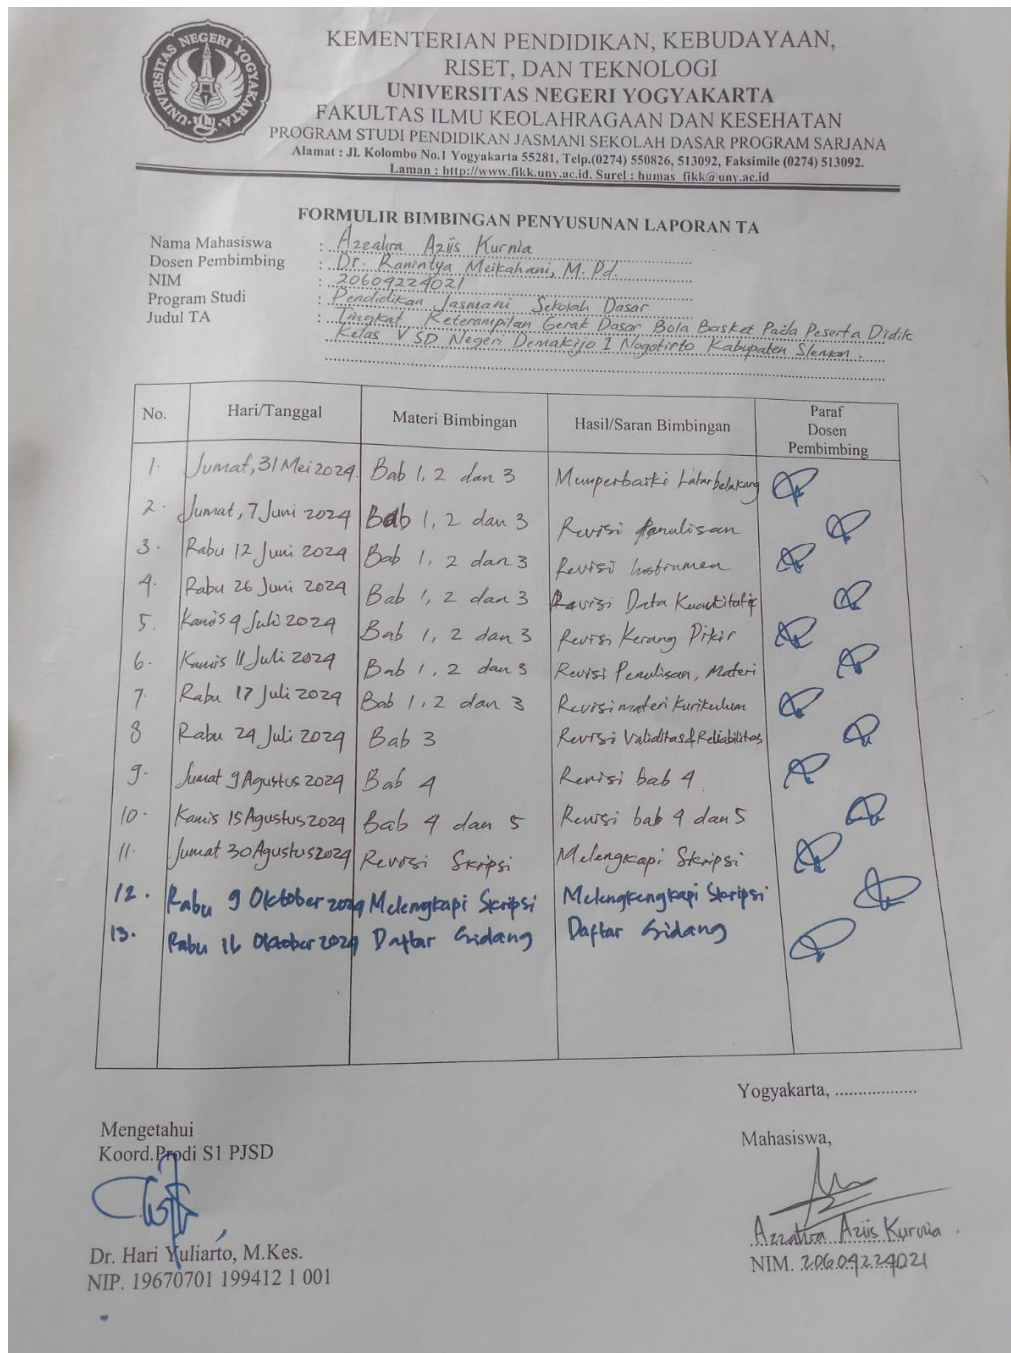 UNIVERSITAS NEGERI YOGYAKARTA
KEMENTERIAN PENDIDIKAN, KEBUDAYAAN,
RISET, DAN TEKNOLOGI
UNIVERSITAS NEGERI YOGYAKARTA
FAKULTAS ILMU KEOLAHRAGAAN DAN KESEHATAN
PROGRAM STUDI PENDIDIKAN JASMANI SEKOLAH DASAR PROGRAM SARJANA
Alamat : Jl. Kolombo No.1 Yogyakarta 55281, Telp.(0274) 550826, 513092, Faksimile (0274) 513092.
Laman : http://www.fikk.uny.ac.id. Surel : humas_fikk@uny.ac.id
FORMULIR BIMBINGAN PENYUSUNAN LAPORAN TA
Nama Mahasiswa : Azzahra Aziis Kurnia
Dosen Pembimbing : Dr. Ranintya Meikahani, M.Pd.
NIM : 20604224021
Program Studi : Pendidikan Jasmani Sekolah Dasar
Judul TA : Tingkat Keterampilan Gerak Dasar Bola Basket Pada Peserta Didik
Kelas V SD Negeri Demakijo 1 Nogotirto Kabupaten Sleman.
No. Hari/Tanggal Materi Bimbingan Hasil/Saran Bimbingan Paraf Dosen Pembimbing
1. Jumat, 31 Mei 2024 Bab 1, 2 dan 3 Memperbaiki Latar belakang
2. Jumat, 7 Juni 2024 Bab 1, 2 dan 3 Revisi Penulisan
3. Rabu 12 Juni 2024 Bab 1, 2 dan 3 Revisi Instrumen
4. Rabu 26 Juni 2024 Bab 1, 2 dan 3 Revisi Data Kuantitatif
5. Kamis 4 Juli 2024 Bab 1, 2 dan 3 Revisi Kerang Pikir
6. Kamis 11 Juli 2024 Bab 1, 2 dan 3 Revisi Penulisan, Materi
7. Rabu 17 Juli 2024 Bab 1, 2 dan 3 Revisi materi Kurikulum
8 Rabu 24 Juli 2024 Bab 3 Revisi Validitas & Reliabilitas
9. Jumat 9 Agustus 2024 Bab 4 Revisi bab 4
10. Kamis 15 Agustus 2024 Bab 4 dan 5 Revisi bab 4 dan 5
11. Jumat 30 Agustus 2024 Revisi Skripsi Melengkapi Skripsi
12. Rabu 9 Oktober 2024 Melengkapi Skripsi Melengkengkapi Skripsi
13. Rabu 16 Oktober 2024 Daftar Sidang Daftar Sidang
Yogyakarta, ..................
Mengetahui
Koord.Prodi S1 PJSD
Mahasiswa,
Dr. Hari Yuliarto, M.Kes.
NIP. 19670701 199412 1 001
Azzahra Aziis Kurnia.
NIM. 20604224021